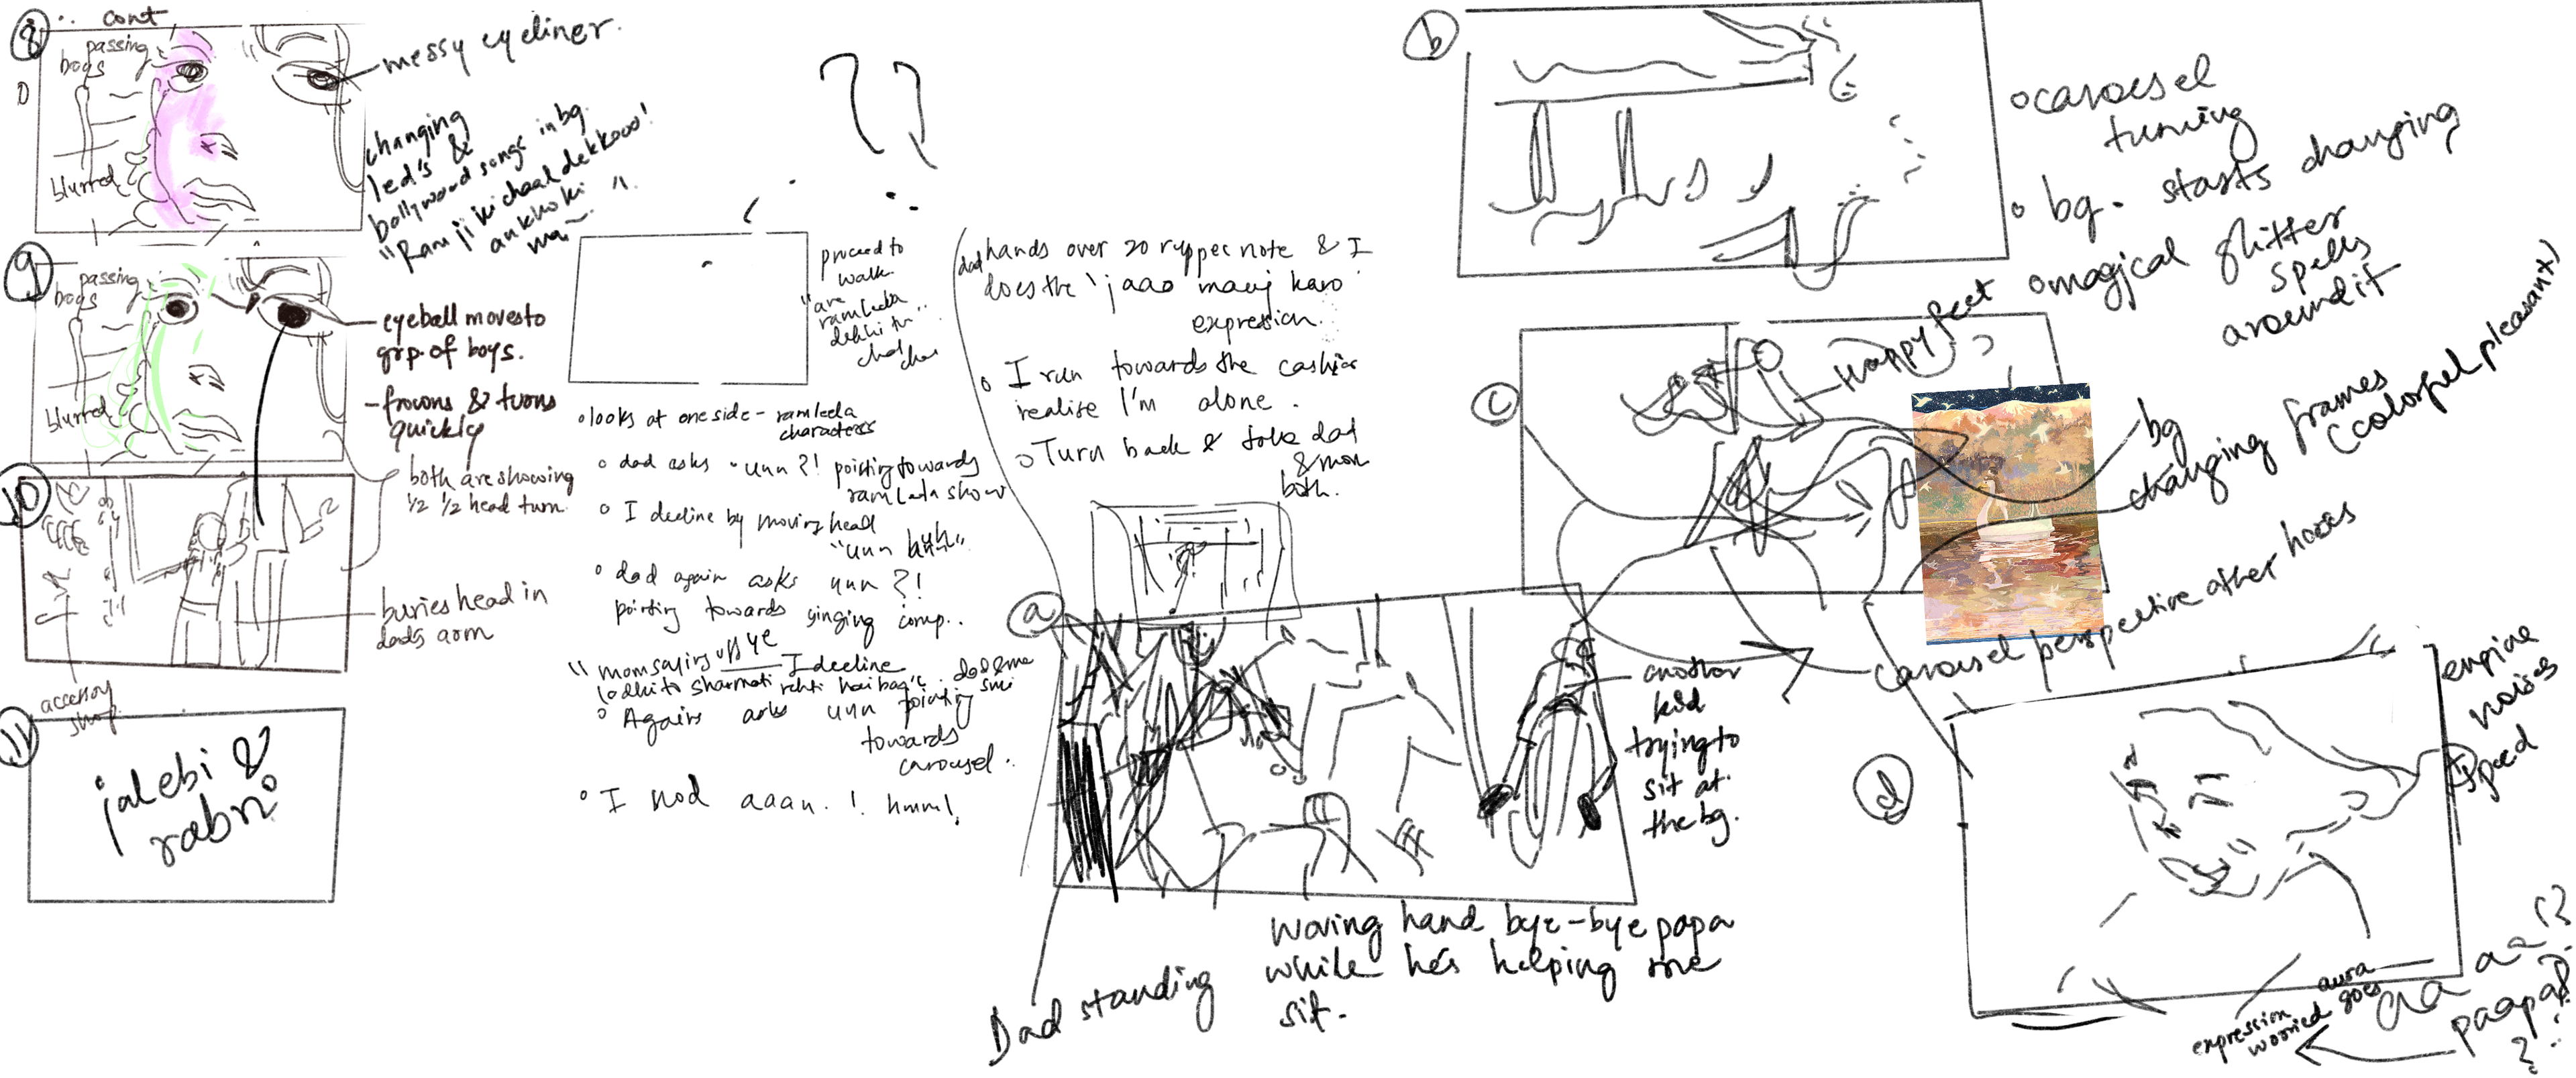 8
cont
passing
boys
blurred
messy eyeliner.
changing
led's &
bollywood songs in bg.
"Ram ji ki chaal dekkooo!
ankho ki
ma~ "
9
passing
boys
blurred
eyeball moves to
grp. of boys.
- frowns & turns
quickly
10
both are showing
1/2 1/2 head turn
buries head in
dads arm
accessory
shop
11
jalebi &
rabri
??
proceed to
walk
"are
ramleela
dekhi tu"..
chal
chal
• looks at one side - ramleela
characters
• dad asks "unn?! pointing towards
ramleela show
• I decline by moving head
"unn huh"
• dad again asks unn?!
pointing towards singing comp..
"mom saying uff ye
I decline
ladki to sharmati rehti hai bas".
• Again asks unn pointing
towards
carousel..
• I nod aaan.! hmm!
dad hands over 20 ruppee note & I
does the 'jaao mauj karo'
expression.
• I run towards the cashier
realise I'm alone.
• Turn back & take dad
& mom
both.
a
another
kid
trying to
sit at
the bg.
Dad standing
waving hand bye-bye papa
while he's helping me
sit.
b
• carousel
turning
• bg. starts changing
• magical glitter
spells
around it
c
Happy feet
bg
changing frames
(colorful pleasant)
carousel perspective other horses
d
engine
noises
speed
aura
goes
expression
worried
aa aa!?
paapa?
?